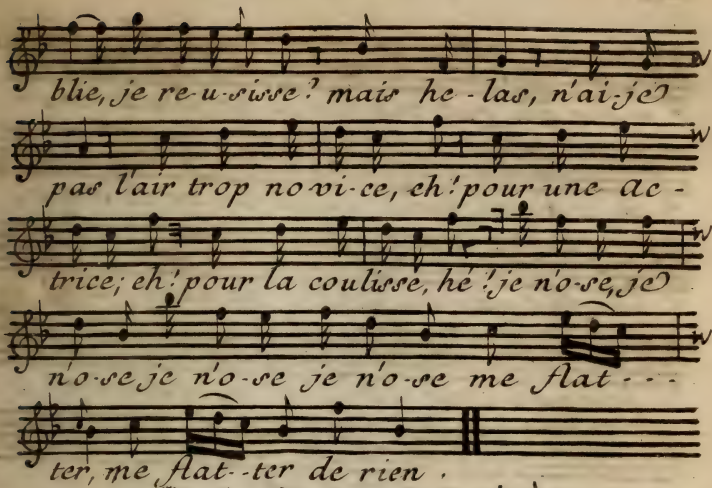 blie, je re-u-sisse? mais he-las, n'ai-je
pas l'air trop no-vi-ce, eh! pour une ac-
trice; eh! pour la coulisse, hé! je n'o-se, je
n'o-se je n'o-se je n'o-se me flat----
ter, me flat--ter de rien.